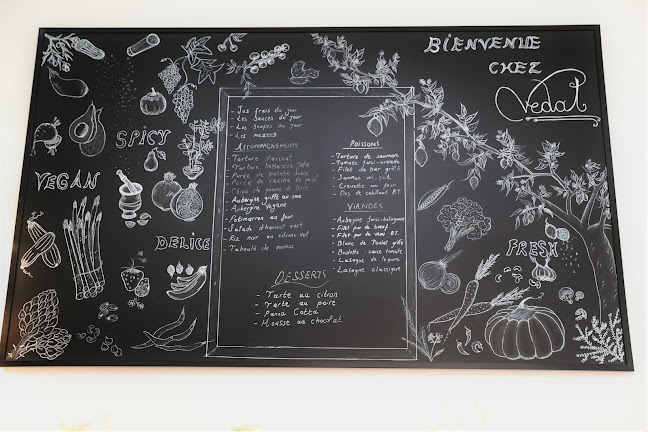 BIENVENUE
CHEZ
Vedat
SPICY
VEGAN
DELICE
FRESH
- Jus frais du jour
- Les sauces du jour
- Les soupes du jour
- Les mezzes
ACCOMPAGNEMENTS
- Tartare d'avocat
- Tartare betterave feta
- Purée de patate douce
- Purée de
- de pomme de terre
- Aubergine grillé au
- Aubergine Vegane
- Potimarron au four
- Salade d'haricot vert
- Riz noir au citron vert
- Taboulé de quinoa
POISSONS
- Tartare de saumon
- Tomate farci-crevette
- Filet de bar grillé
- Saumon mi-cuit
- Crevette au four
- Dos de cabillaud BT.
VIANDES
- Aubergine farci-bolognaise
- Filet pur de bœuf
- Filet pur de veau BT.
- Blanc de Poulet grillé
- Boulette sauce tomate
- Lasagne de légume
- Lasagne classique
DESSERTS
- Tarte au citron
- Tarte au poire
- Pana Cotta
- Mousse au chocolat